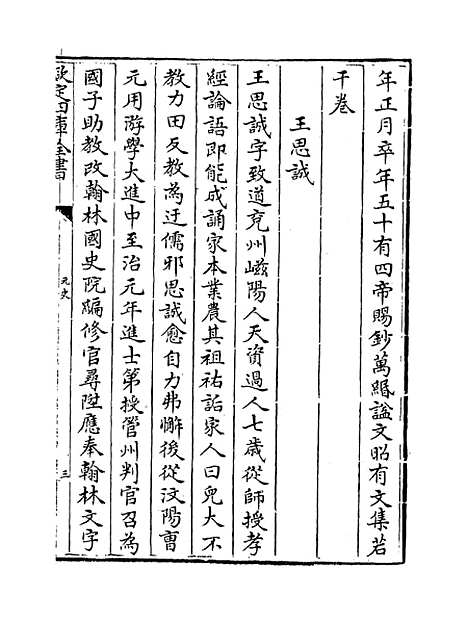 年正月卒年五十有四帝賜鈔萬緡諡文昭有文集若
干卷
王思誠
王思誠字致道兗州嵫陽人天資過人七歲從師授孝
經論語即能成誦家本業農其祖祐詬家人曰兒大不
教力田反教為迂儒邪思誠愈自力弗懈後從汶陽曹
元用游學大進中至治元年進士第授管州判官召為
國子助教改翰林國史院編修官尋陞應奉翰林文字
欽定四庫全書
元史
三